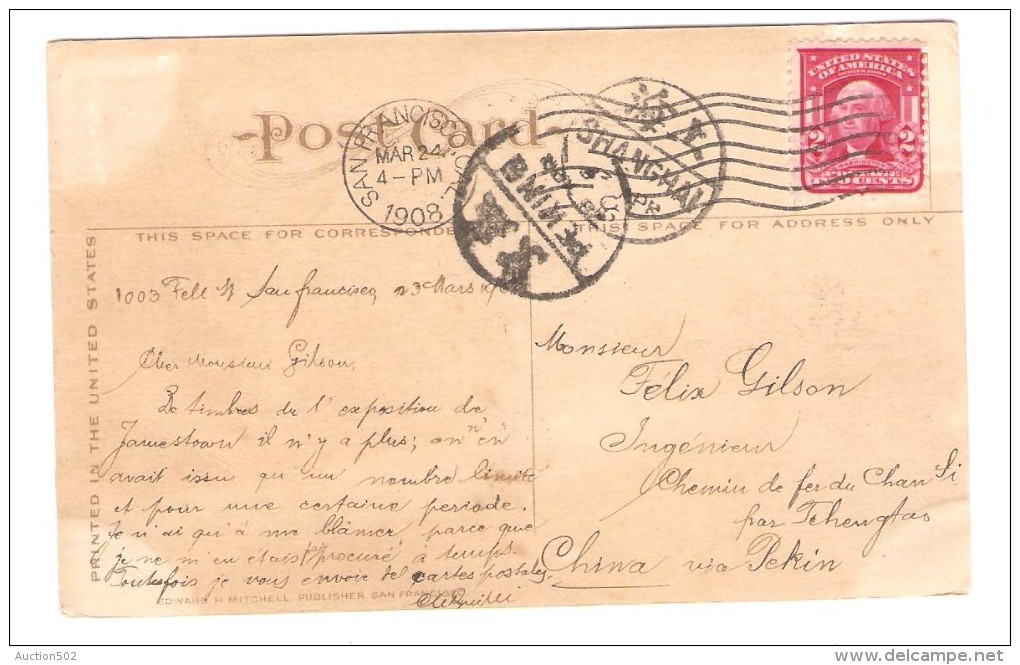 Post Card
SAN FRANCISCO, CAL.
MAR 24
4-PM
1908
SHANGHAI
PEKING
UNITED STATES
OF AMERICA
2 2
WASHINGTON
TWO CENTS
THIS SPACE FOR CORRESPONDE
THIS SPACE FOR ADDRESS ONLY
PRINTED IN THE UNITED STATES
1003 Fell St San francisco, 23 Mars 190
Cher Monsieur Gilson,
De timbres de l'exposition de
Jamestown il n'y a plus; on n'en
avait issu qu'un nombre limité
et pour une certaine periode.
Je n'ai qu'à me blâmer, parce que
je ne m'en étais pas procuré à temps.
Toutefois je vous envoie de cartes postales.
EDWARD H. MITCHELL, PUBLISHER, SAN FRANCISCO
Monsieur
Félix Gilson
Ingénieur
Chemin de fer du Chan Si
par Tchengtao
China via Pekin
Auction502
delcampe.net